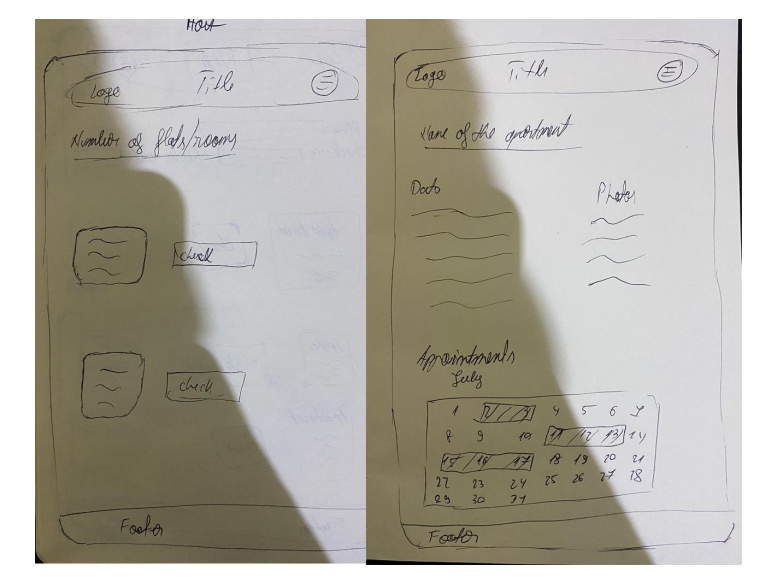 Host
Logo Title
Number of flats/rooms
check
check
Footer
Logo Title
Name of the apartment
Data Photos
Appointments
July
1 2 3 4 5 6 7
8 9 10 11 12 13 14
15 16 17 18 19 20 21
22 23 24 25 26 27 28
29 30 31
Footer